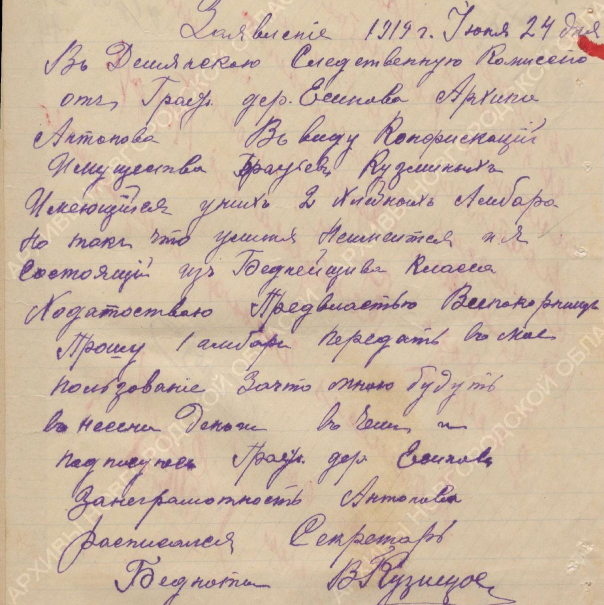 Заявленіе 1919 г. Июня 24 дня
Въ Демянскою Следственную Комисию
отъ Граж. дер. Есипова Архипа
Антонова Въ виду Конфискацій
Имущества Кузминыхъ
Имеющійся унихъ 2 хлѣбныхъ Амбара
Но такъ что уминя Неимеится и я
Состоящій изъ Беднейшива Класса
Ходатоствою Предвластью
Прошу 1 амбаръ передать въ мое
пользованіе Зачто мною будутъ
внесены Деньги въ чемъ и
подписуюсь Граж. дер Есипова
Занеграмотность Антонова
расписался Секретарь
Бедноты В Кузнецов